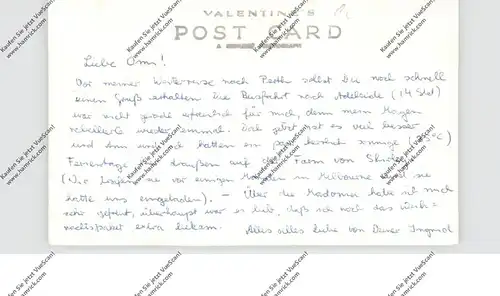 VALENTINE'S
POST CARD
Liebe Omi!
Vor meiner Weiterreise nach Perth sollst Du noch schnell
einen Gruß erhalten. Die Busfahrt nach Adelaide (14 Std)
war nicht gerade erfreulich für mich, denn mein Magen
rebellierte wieder einmal. Doch jetzt ist es viel besser
und wir hatten ein paar sonnige (25°C)
Ferientage draußen auf der Farm von
(Wir vor einigen in Melbourne und sie
hatte uns eingeladen). – Über die Madonna habe ich mich
sehr gefreut, überhaupt war es lieb, daß ich noch das Weih=
nachtspaket extra bekam. Alles alles Liebe von Deiner Ingrid
Kaufen Sie jetzt VueScan!
www.hamrick.com